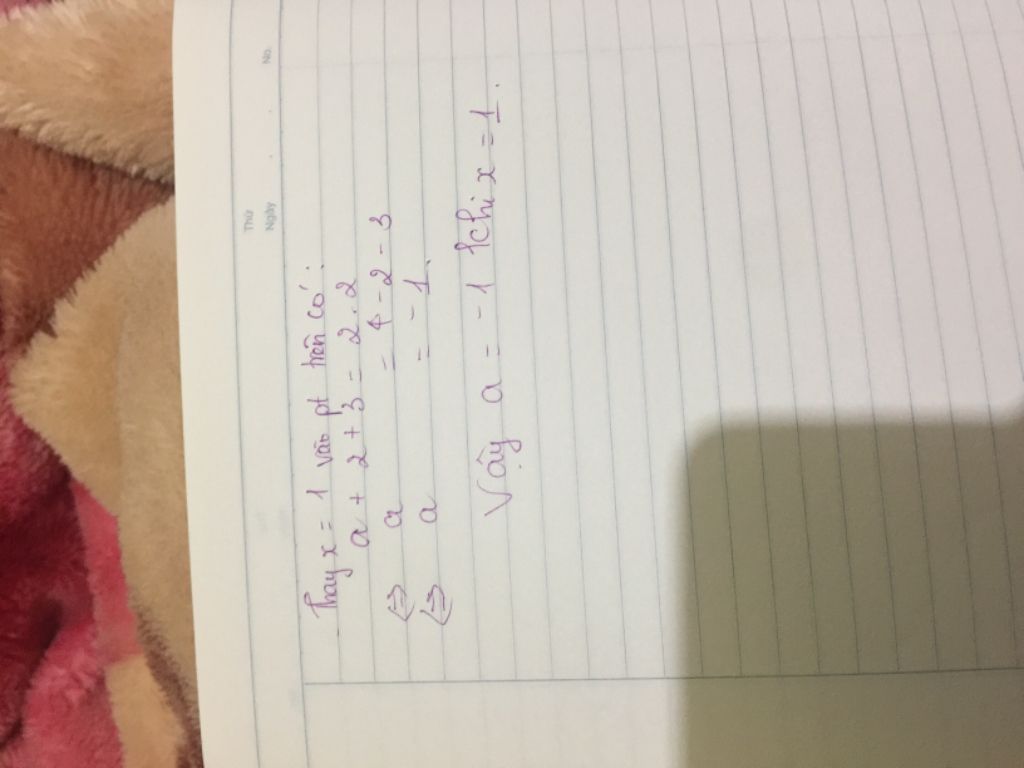 No.
Thứ
Ngày
Thay x = 1 vào pt trên có:
a + 2 + 3 = 2 . 2
⇔ a = 4 - 2 - 3
⇔ a = - 1.
Vậy a = - 1 khi x = 1.